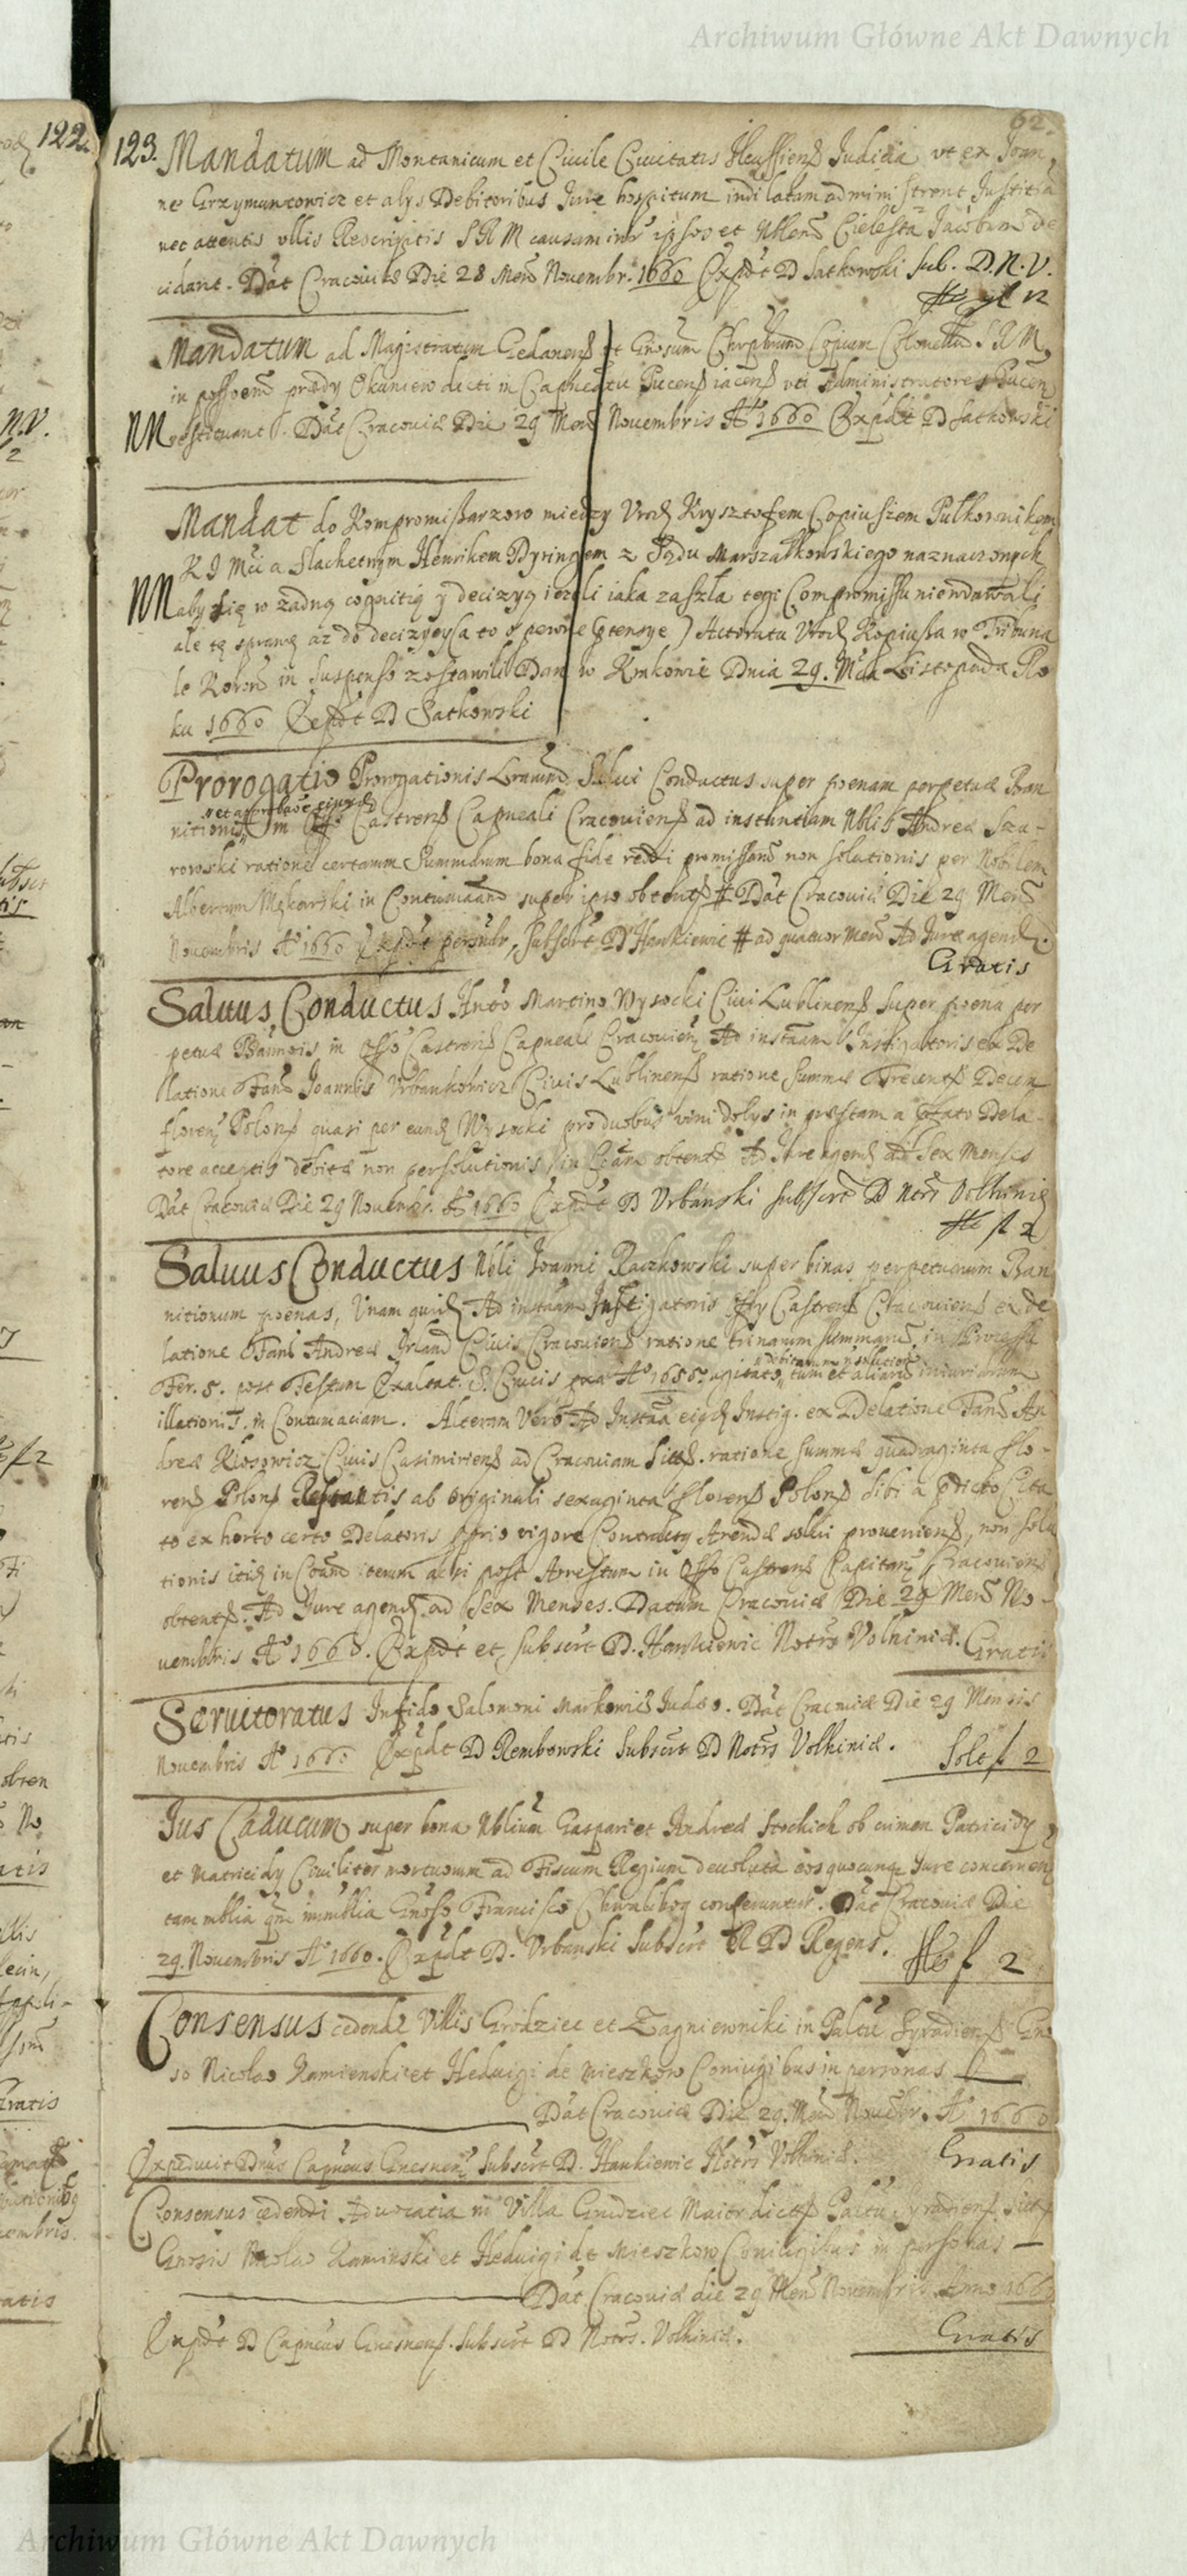 Archiwum Główne Akt Dawnych
122.
62.
123. Mandatum ad Montanicum et Civile Civitatis Ilcussiens Judicia vt ex Joan
ne Grzymuntowicz et alys Debitoribus Jure hospitum indilatam administrent Justitia
nec attentis vllis Rescriptis S R M causam inter ipsos et Nblem Cielesta Jacobum de
cidant. Dat Cracoviæ Die 28 Mens Novembr. 1660 Expdt D Satkowski sub. D. N. V.
Mandatum ad Magistratum Gedanens et Gnosum Copium Colonellu S R M,
in possoem prædy Okuniewo dicti in Capneatu Pucens iacens vti Administratores Pucen
NN restituant. Dat Cracoviæ Die 29 Mens Novembris Aº 1660 Expdt D Satkowski
Mandat do Kompromissarzow między Vrodz Krysztofem Copiuszem Pułkownikem
K J Mci a Slachetnym Henrikem Dyringem z Sądu Marszałkowskiego naznaczonych
NN aby się w zadną cognitią y decizyą iezeli iaka zaszła tegi Compromissu niewdawali
ale tę sprawę az do decizyey (a to o pewne ptensye) Actoratu Vrodz Kopiussa w Tribuna
le Koron in suspenso zostawili Dan w Krakowie Dnia 29. Mca Listopada Ro
ku 1660 Expdt D Satkowski
Prorogatio Prorogationis Salvi Conductus super pœnam perpetuæ Ban
nitionis in Offo Castrens Capneali Cracoviens ad instantiam Nblis Andreæ Sza-
rowski ratione certarum Summarum bona fide reddi promissarum non solutionis per Nobilem
Albertum Mękarski in Contumaciam super ipso obtent # Dat Cracoviæ Die 29 Mens
Novembris Aº 1660 Expdt subscrt D Hankiewic # ad quatuor Mens Ad Jure agend.
Gratis
Salvus Conductus Martino Wysocki Civi Lublinens Super pœna per
petuæ Bannois in Offo Castrens Capneali Cracoviens Ad instaam Instigatoris ex De
latione Fam Joannis Vrbankowicz Civis Lublinens ratione summæ Trecent Decem
floren Polon quasi per eund Wysocki pro duobus vini dolys in præstam a pfato Dela-
tore acceptis debitæ non persolutionis in Coam obtent Ad Jure agend ad Sex Menses
Dat Cracoviæ Die 29 Novembr. Aº 1660 Expdt D Vrbanski subscrt D Ntrs Volhiniæ
Salvus Conductus Nbli Joanni Raczkowski super binas perpetuarum Ban
nitionum pœnas, Vnam quid Ad instaam Instigatoris Offy Castrens Cracoviens ex de
latione Fam Andreæ Civis Cracoviens ratione trinarum summarum in Processu
Fer. 5. post Festum Exaltat. S. Crucis Aº 1655. agitato, tum et aliarum iniuriarum
illationis in Contumaciam. Alteram Vero Ad Instaa eiqd Instig. ex Delatione Fam An
dreæ Klosowicz Civis Casimiriens ad Cracoviam sitt. ratione summæ quadraginta flo-
rens Polon Restantis ab originali sexaginta floren Polon sibi a pdicto Cita
to ex horto certo Delatoris pprio vigore Contractus Arendæ solvi proveniens, non solu
tionis itid in Coam iterum acsi post Arrestum in Offo Castrens Capitan Cracoviens
obtent. Ad Jure agend. ad Sex Menses. Datum Cracoviæ Die 29 Mens No-
vembris Aº 1660. Expdt et subscrt D. Hankiewic Notrs Volhiniæ. Gratis
Servitoratus Infido Salomoni Markowic Judæo. Dat Cracoviæ Die 29 Mensis
Novembris Aº 1660 Expdt D Rembowski Subscrt D Notrs Volhiniæ. Solt f 2
Jus Caducum super bona Nblium Gaspari et Andreæ Stockich ob crimen Patricidy
et Matricidy Civiliter mortuorum ad Fiscum Regium devoluta eos quocunqe Jure concernen
tam mblia qm immblia Gnoso Francisco Chwalibog conferuntur. Dat Cracoviæ Die
29. Novembris Aº 1660. Expdt D. Vrbanski Subscrt R D Regens. f 2
Consensus cedendi Villis Grodziec et Zagniewniki in Paltu Syradiens Gno
so Nicolao Kamienski et Hedvigi de Mieszkow Coniugibus in personas
Dat Cracoviæ Die 29. Mens Novembr. Aº 1660
Expedivit Dnus Capneus Gnesnens Subscrt D. Hankiewic Notrs Volhiniæ. Gratis
Consensus cedendi Advocatia in Villa Grudziec Maior dicta Paltu Syradiens sitt
Gnosis Nicolao Kaminski et Hedvigi de Mieszkow Coniugibus in personas
Dat Cracoviæ die 29 Mens Novembris Anno 1660
Expdt D Capneus Gnesnens. Subscrt D Notrs. Volhiniæ. Gratis
Archiwum Główne Akt Dawnych